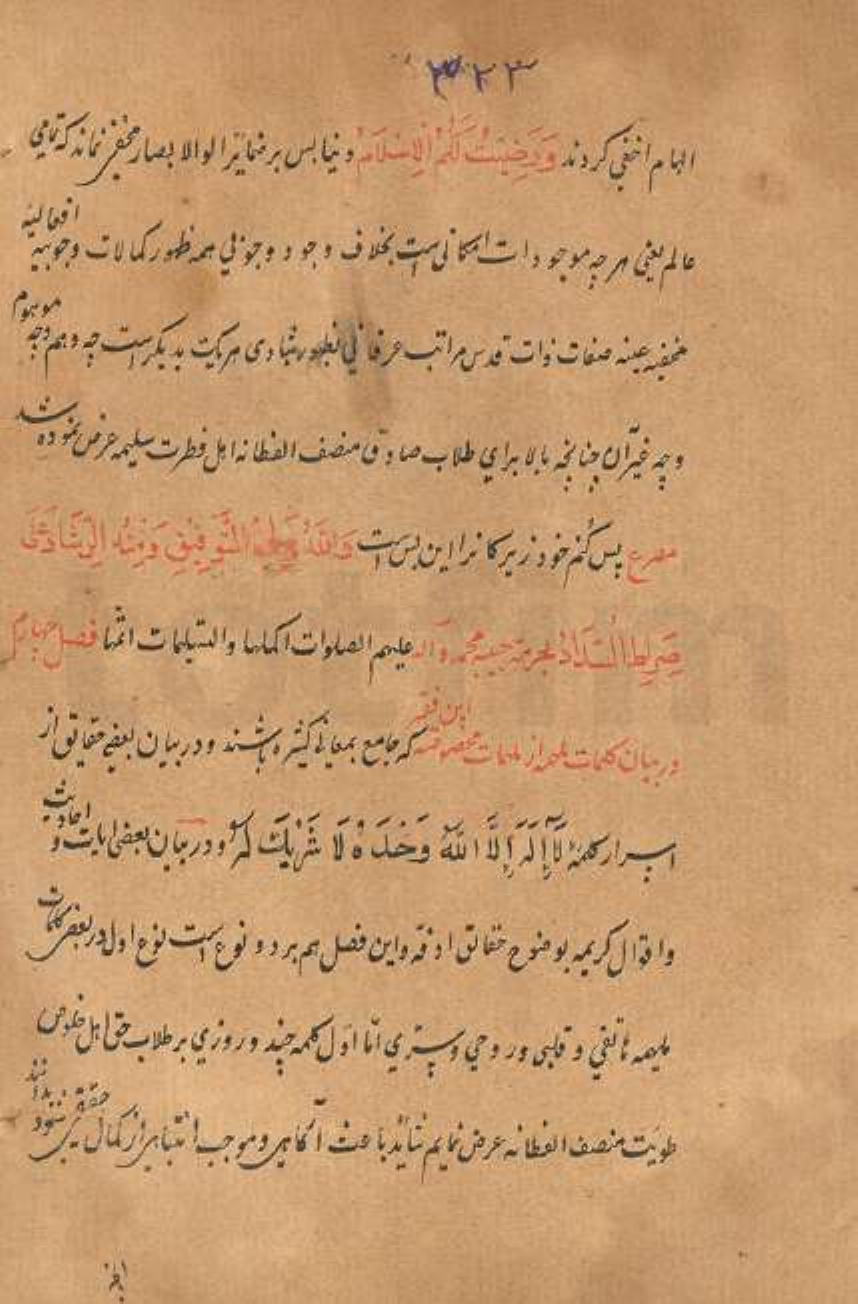 ۳۲۳
الهام اخفی کردند وَرَضِيتُ لَكُمُ الْاِسْلَامَ دنیا بس بر ضمائر الوالا بصار مخفی نماند که تمامی
عالم یعنی هر چه موجودات امکانی است بخلاف وجود وجوبی همه ظهور کمالات وجوبیه افعالیه
صفات ذات قدس مراتب عرفانی هر یک بدیگر است چه وهم وچه موهوم
وچه غیر آن چنانچه بالا برای طلاب صادق منصف الفطانه اهل فطرت سلیمه عرض نموده شد
مصرع پس کنم خود زیرکانرا این بس است وَاللهُ وَلِيُّ التَّوفِيقِ وَمِنْهُ الرَّشَادُ عَلَى
صِرَاطِ السَّدَادِ بحرمة حبیبه محمد وآله علیهم الصلوات اکملها والتسلیمات اتمها فصل چهارم
در بیان کلمات ملهمه از ملهمات مخصوصه این فقیر که جامع بمعانی کثیره باشند ودر بیان بعضی حقایق از
اسرار کلمهٔ لَا اِلٰهَ اِلَّا اللهُ وَحْدَهُ لَا شَرِيْكَ لَهُ ودر بیان بعضی ایات و احادیث
واقوال کریمه بوضوح حقائق ادقه واین فصل هم بر دو نوع است نوع اول در بعضی کلمات
ملهمه هاتفی وقلبی وروحی وسرّی امّا اول کلمه چند وروزی بر طلاب حق اهل خلوص
طویّت منصف الفطانه عرض نمایم شاید باعث آگاهی وموجب انتباهی از کمال حقیقی شود